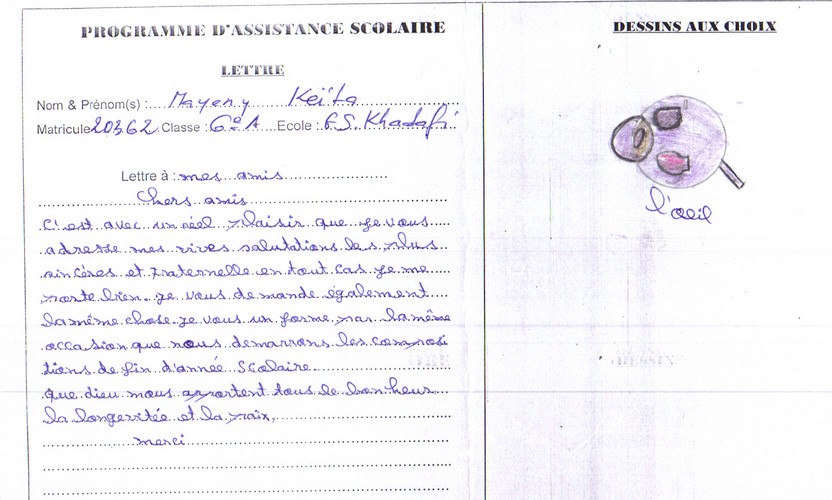 PROGRAMME D'ASSISTANCE SCOLAIRE
LETTRE
Nom & Prénom(s) : Mayeny Keïta
Matricule 20362 Classe : 6e A Ecole : F.S. Khadafi
Lettre à : mes amis
Chers amis
C'est avec un réel plaisir que je vous
adresse mes vives salutations les plus
sincères et fraternelle en tout cas je me
porte bien. je vous demande également
la même chose je vous un forme par la même
occasion que nous demarrons les composi
tions de fin d'année Scolaire
que dieu nous apportent tous le bonheur
la longevitée et la paix,
merci
DESSINS AUX CHOIX
l'oeil